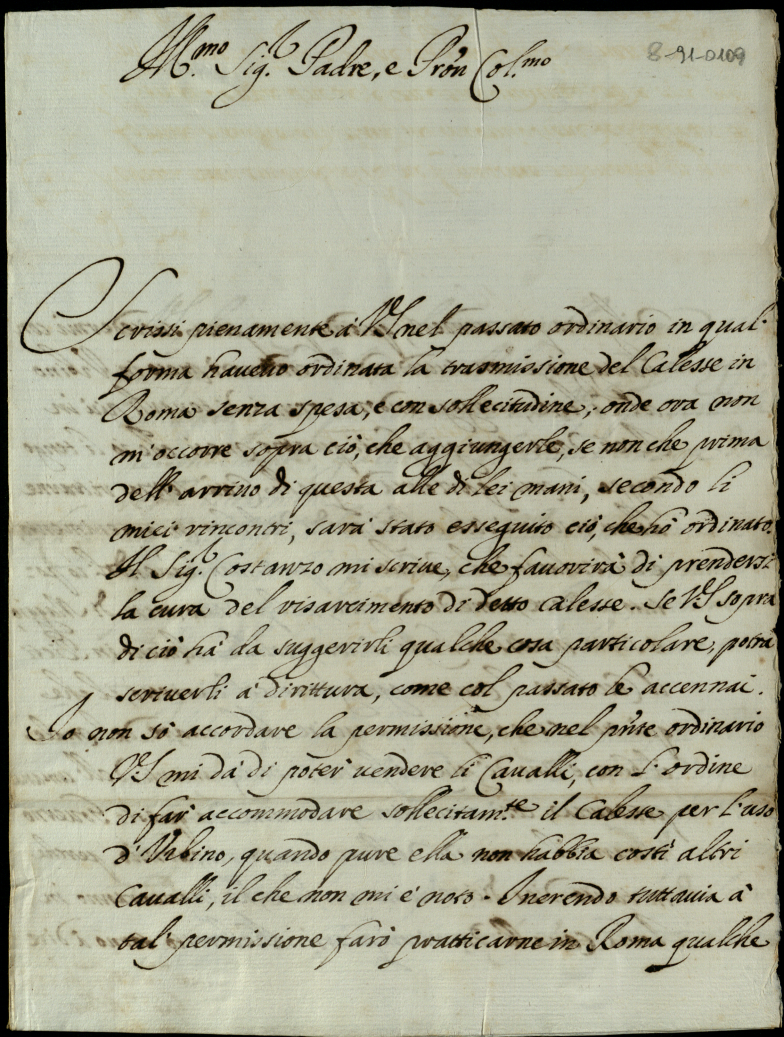 Ill.mo Sig.r Padre, e Pron Col.mo
8-91-0109
Scrissi pienamente à VS nel passato ordinario in qual'
forma havevo ordinata la trasmissione del Calesse in
Roma senza spesa, e con sollecitudine; onde ora non
m'occorre sopra ciò, che aggiungerle, se non che prima
dell' arrivo di questa alle di lei mani, secondo li
miei rincontri, sarà stato esseguito ciò, che hò ordinato.
Il Sig.r Costanzo mi scrive, che favorirà di prendersi
la cura del risarcimento di detto calesse. Se VS sopra
di ciò hà da suggerirli qualche cosa particolare, potrà
scriverli à dirittura, come col passato le accennai.
Io non sò accordare la permissione, che nel pnte ordinario
VS mi dà di poter vendere li Cavalli, con l'ordine
di far accommodare sollecitam.te il Calesse per l'uso
d'Urbino, quando pure ella non habbia costì altri
Cavalli, il che non mi è noto. Inerendo tuttavia à
tal' permissione farò pratticarne in Roma qualche